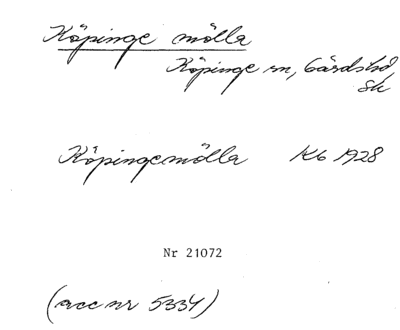 Köpinge mölla
Köpinge sn, Gärds hd,
Sk
Köpingemölla Kb 1928
Nr 21072
(acc nr 5334)